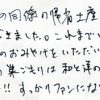 の同僚の帰省土産
ごきました。これまでい
のおみやげをいただい
巣ごもりは和と洋の
!! すっかりファンにな